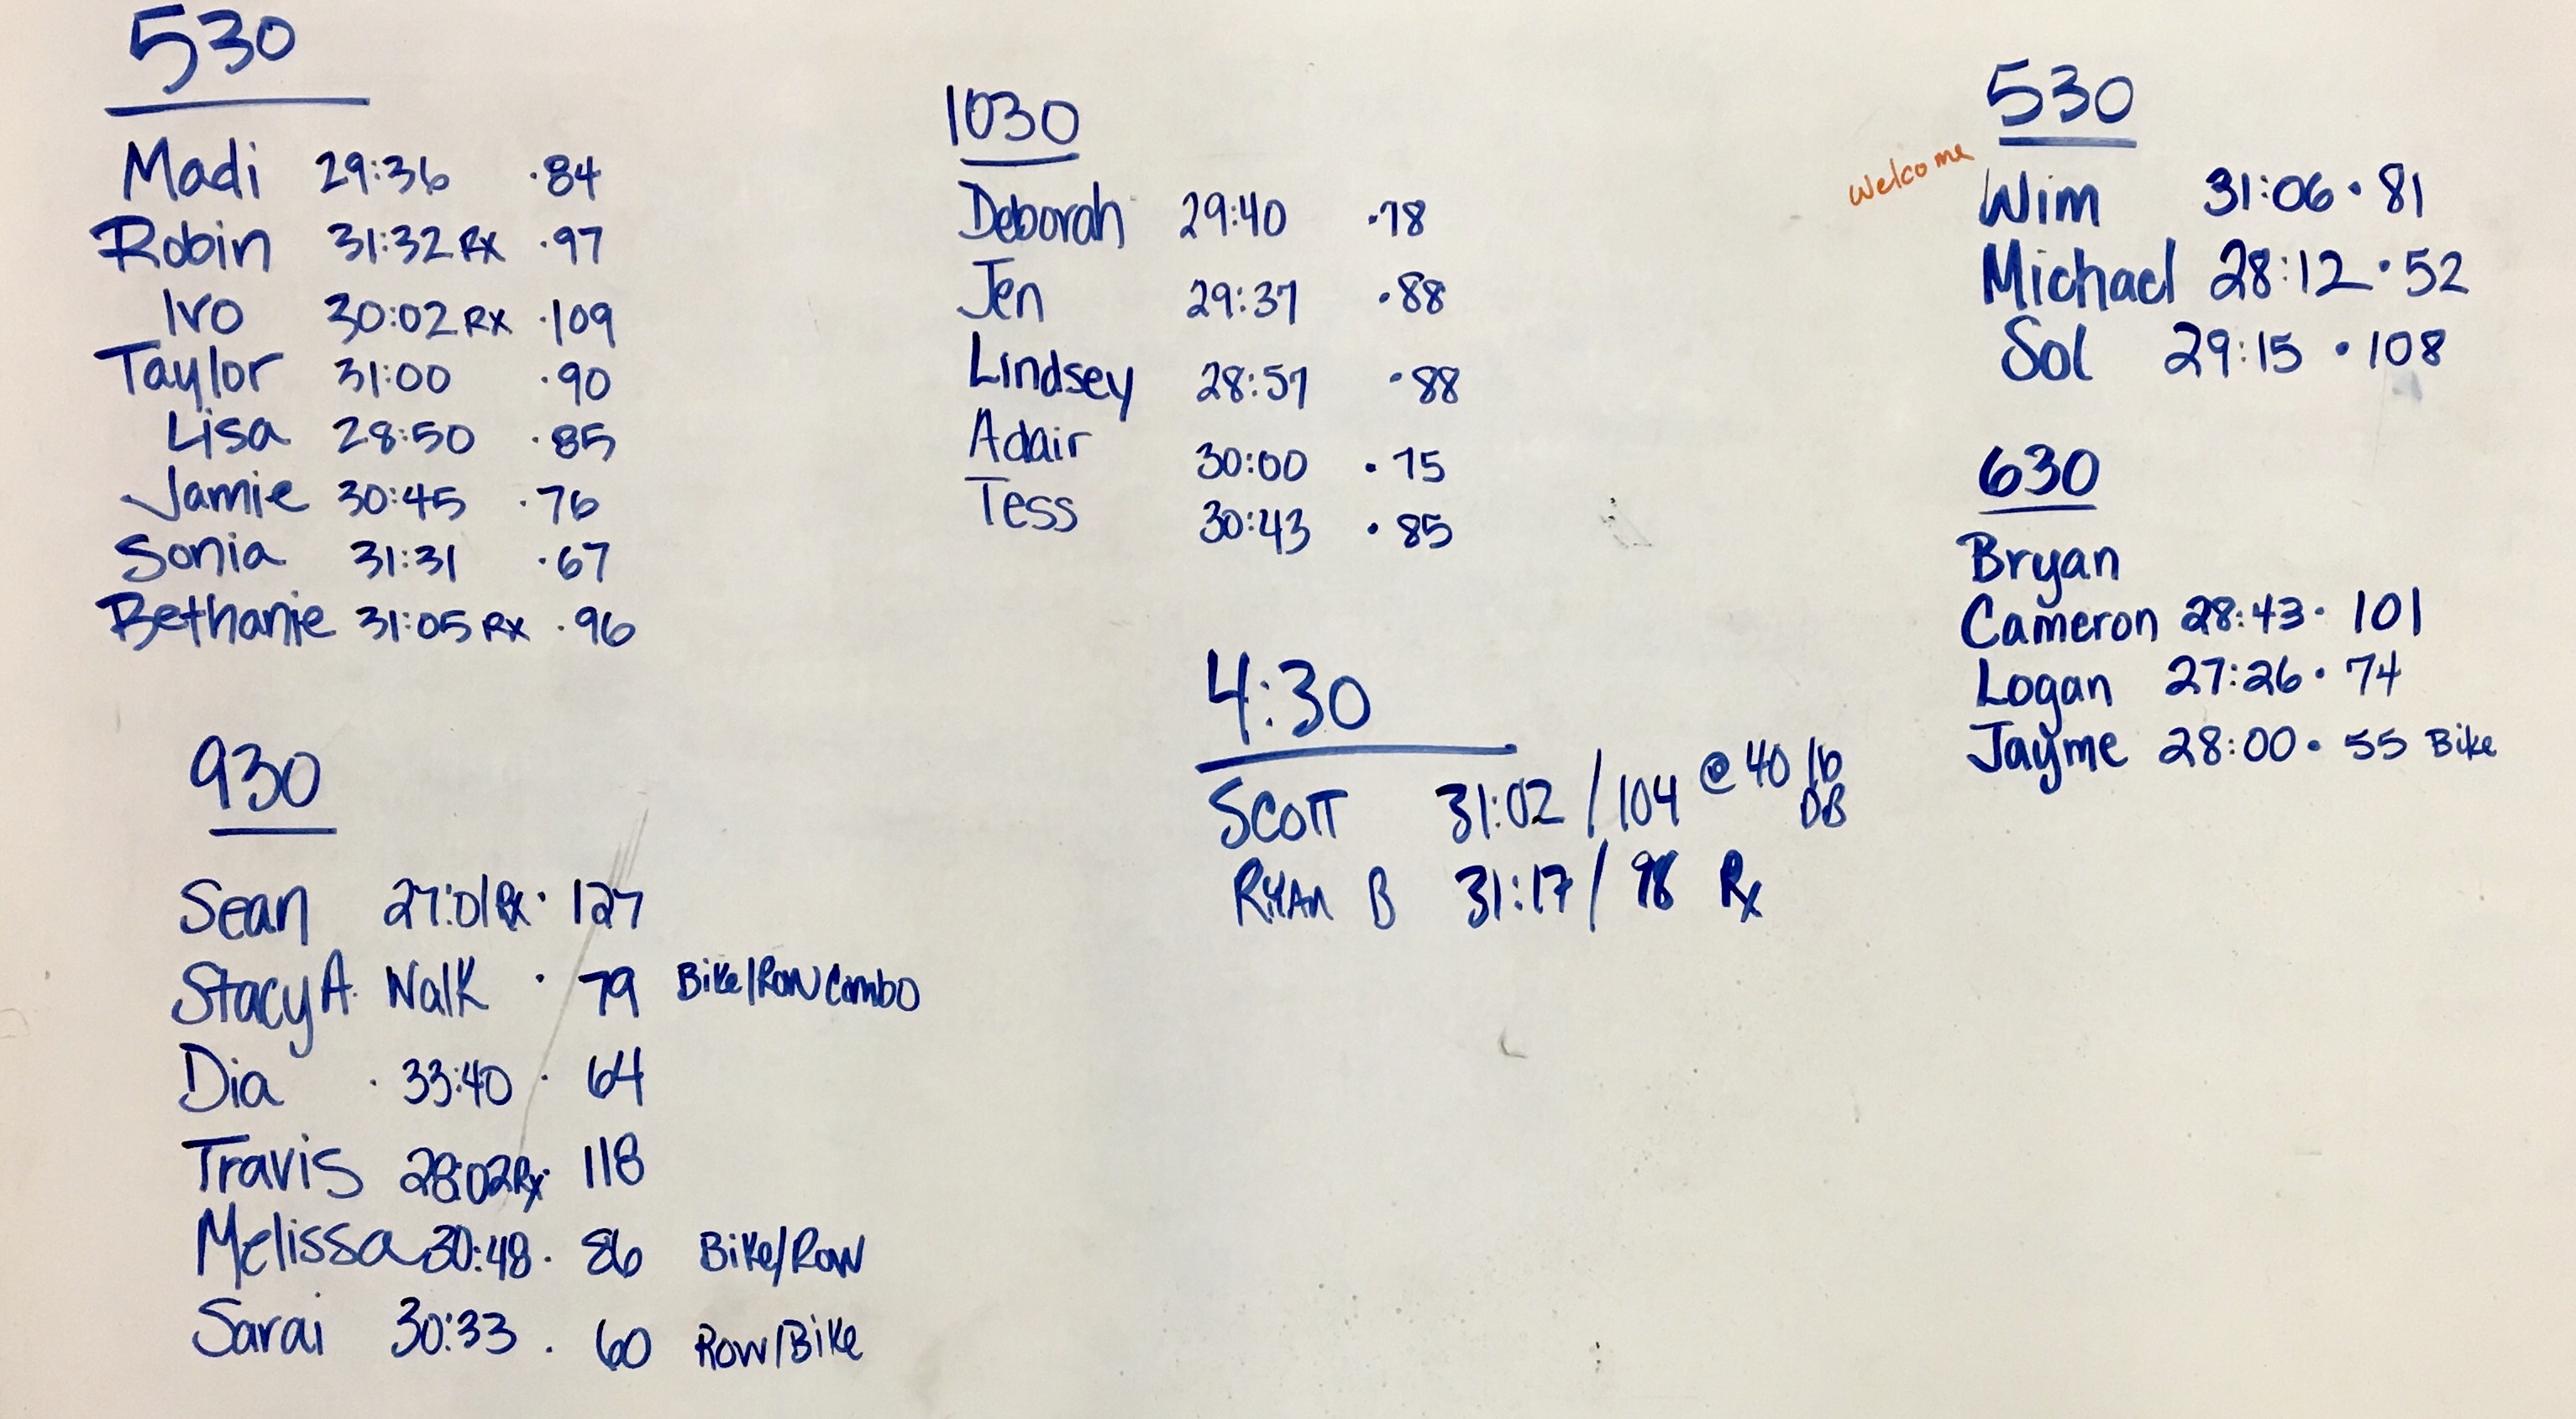 530
Madi 29:36 ·84
Robin 31:32 RX ·97
Ivo 30:02 RX ·109
Taylor 31:00 ·90
Lisa 28:50 ·85
Jamie 30:45 ·76
Sonia 31:31 ·67
Bethanie 31:05 RX ·96
930
Sean 27:01 Rx · 127
Stacy A. Walk · 79 Bike/Row Combo
Dia · 33:40 · 64
Travis 28:02 Rx · 118
Melissa 30:48 · 86 Bike/Row
Sarai 30:33 . 60 Row/Bike
1030
Deborah 29:40 ·78
Jen 29:37 ·88
Lindsey 28:57 ·88
Adair 30:00 · 75
Tess 30:43 · 85
4:30
SCOTT 31:02 / 104 @ 40 lb DB
RYAN B 31:17 / 98 Rx
530
Welcome
Wim 31:06 · 81
Michael 28:12 · 52
Sol 29:15 · 108
630
Bryan
Cameron 28:43 · 101
Logan 27:26 · 74
Jayme 28:00 · 55 Bike